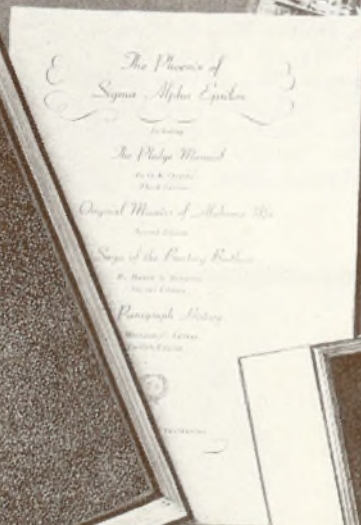 The Phoenix of
Sigma Alpha Epsilon
Including
The Pledge Manual
Third Edition
Original Minutes of Alabama Mu
Second Edition
Saga of the Founding Brothers
Second Edition
Paragraph History
Twelfth Edition